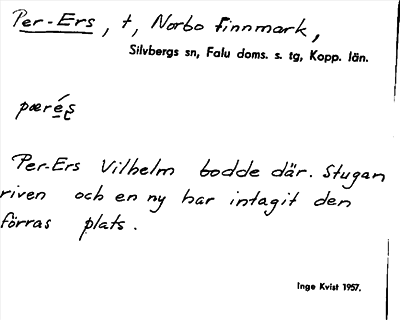 Per-Ers, t, Norbo finnmark,
Silvbergs sn, Falu doms. s. tg, Kopp. län.
pærés
Per-Ers Vilhelm bodde där. Stugan
riven och en ny har intagit den
förras plats.
Inge Kvist 1957.